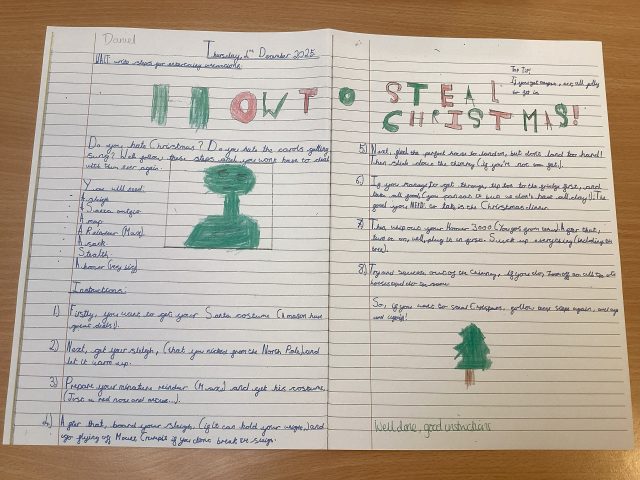 Daniel
Thursday, 4th December 2025
WALT write steps for entertaining instructions.
HOW TO STEAL
CHRISTMAS!
Do you hate Christmas? Do you hate the carols getting
sung? Well follow these steps and you wont have to deal
with them ever again.
You will need:
A sleigh
A Santa
A map
A Reinder (Max)
A sack
Stealth
A hover (very big)
Instructions:
1) Firstly, you want to get your Santa costume (Amazon have
great deals).
2) Next, get your sleigh, (that you nicked from the North Pole) and
let it warm up.
3) Prepare your miniature reinder (Max) and get his costume,
(Just a red nose and
4) After that, board your sleigh, (if it can hold your and
flying off Mount Crumpit if you dont break the sleigh.
Top Tip:
If you get
to get in
5) Next, find the perfect house to land on, but dont land too hard!
Then slide down the chimney (if you're not too fat).
6) If you manage to get through, tip toe to the fridge first, and
take all food (you can eat it but we don't have all day!). The
food you NEED to take is the Christmas dinner.
7) Then whip out your Hoover 3000 After that,
turn on, well, plug in first. Suck up everything (including the
tree).
8) Try and squeeze out of the chimney, if you do, zoom off to all the
houses and do the same.
So, if you want to steal Christmas, follow these steps again, and
and again!
Well done, good instructions